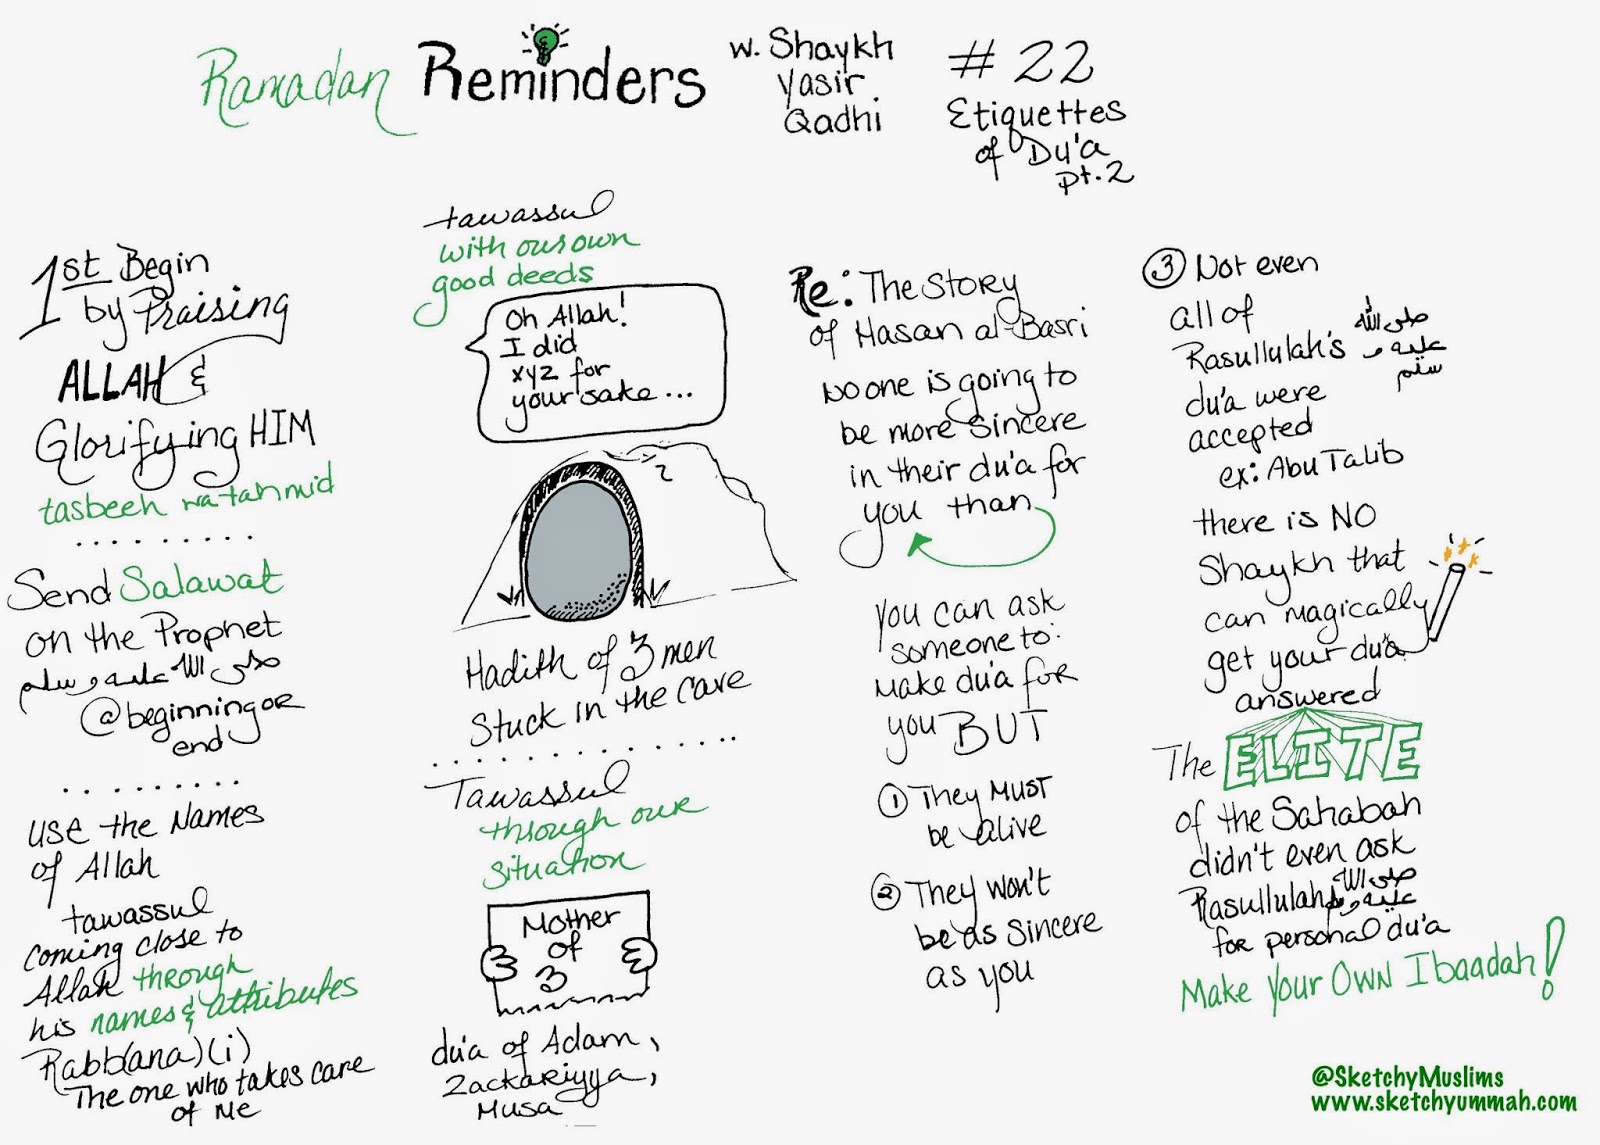 Ramadan Reminders
w. Shaykh
Yasir
Qadhi
# 22
Etiquettes
of Du'a
pt.2
1st Begin
by Praising
ALLAH &
Glorifying HIM
tasbeeh wa tahmid
Send Salawat
on the Prophet
صلى الله عليه و سلم
@beginning or
end
use the Names
of Allah
tawassul
coming close to
Allah through
his names & attributes
Rabb(ana)(i)
The one who takes care
of Me
tawassul
with our own
good deeds
Oh Allah!
I did
xyz for
your sake...
Hadith of 3 men
Stuck in the Cave
Tawassul
through our
situation
Mother
of
3
du'a of Adam,
Zackariyya,
Musa
Re: The Story
of Hasan al-Basri
No one is going to
be more sincere
in their du'a for
you than
you can ask
someone to
make du'a for
you BUT
① They MUST
be alive
② They won't
be as sincere
as you
③ Not even
all of
Rasullulah's صلى الله
عليه و
سلم
du'a were
accepted
ex: Abu Talib
there is NO
Shaykh that
can magically
get your du'a
answered
The ELITE
of the Sahabah
didn't even ask
Rasullulah صلى الله
عليه و سلم
for personal du'a
Make Your OWN Ibaadah!
@SketchyMuslims
www.sketchyummah.com